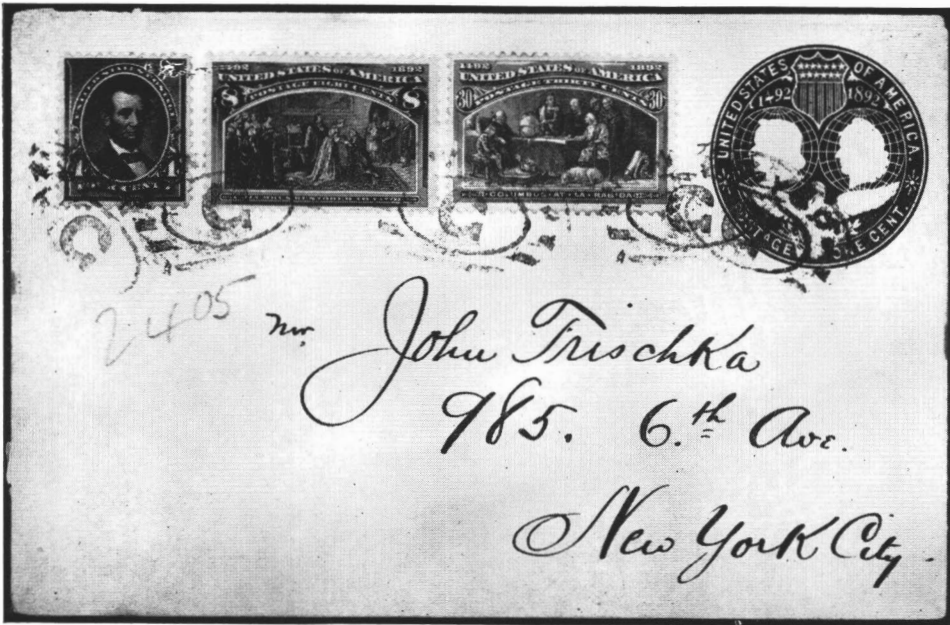 UNITED STATES POSTAGE
4
1492 1892
UNITED STATES OF AMERICA
POSTAGE EIGHT CENTS
8 8
1492 1892
UNITED STATES OF AMERICA
POSTAGE THIRTY CENTS
30 30
COLUMBUS AT LA RABIDA
UNITED STATES OF AMERICA
1492 1892
POSTAGE ONE CENT.
C
C
C
C
2405
Mr. John Trischka
985. 6.th Ave.
New York City.